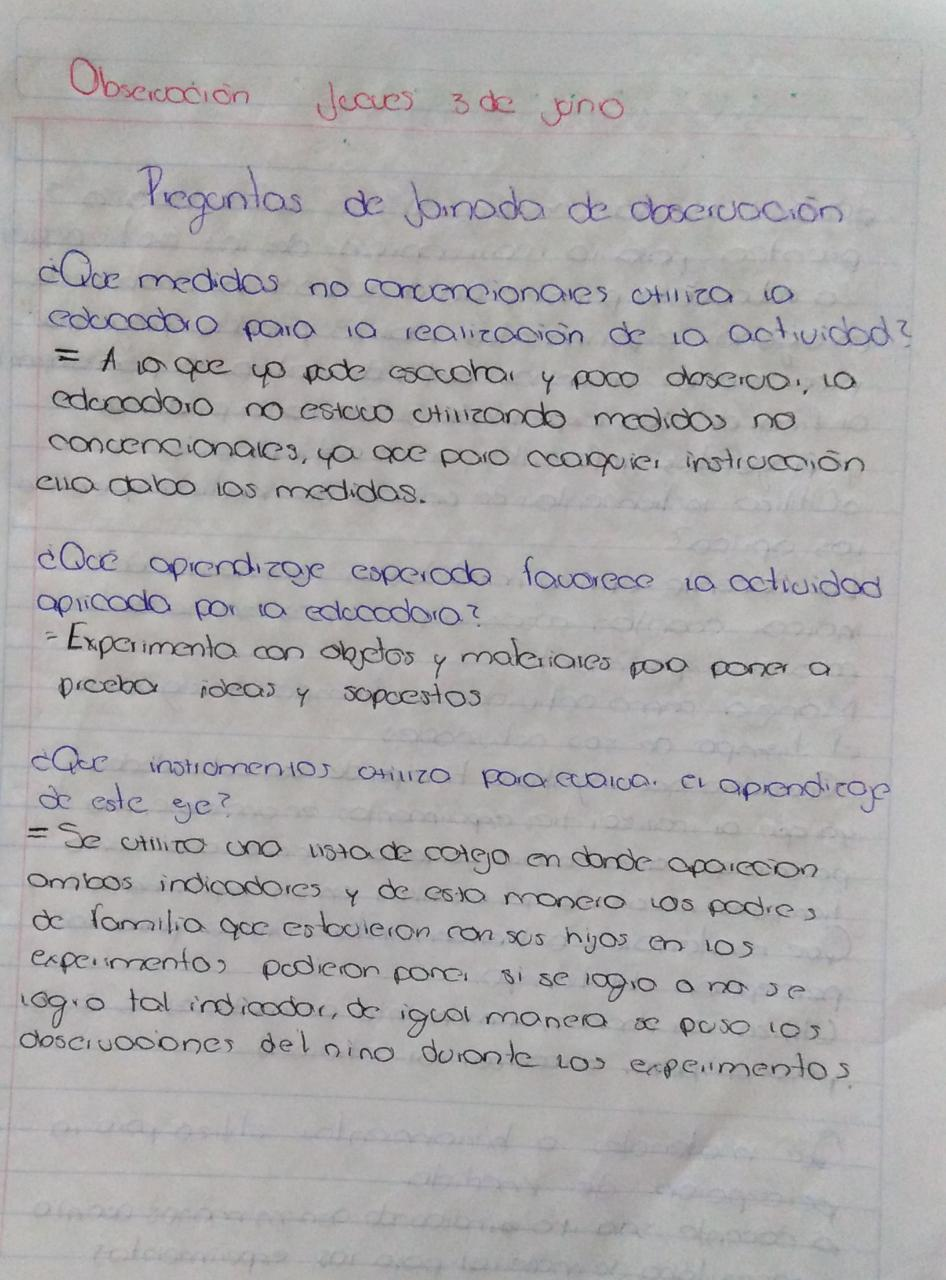 Observación Jueves 3 de junio
Preguntas de Jornada de observación
¿Que medidas no convencionales utiliza la
educadora para la realización de la actividad?
= A lo que yo pude escuchar y poco observar, la
educadora no estavo utilizando medidas no
convencionales, ya que para cualquier instrucción
ella daba las medidas.
¿Qué aprendizaje esperado favorece la actividad
aplicada por la educadora?
= Experimenta con objetos y materiales para poner a
prueba ideas y supuestos
¿Que instrumentos utilizo para evaluar el aprendizaje
de este eje?
= Se utilizo una lista de cotejo en donde aparecian
ambos indicadores y de esta manera los padres
de familia que estuvieron con sus hijos en los
experimentos pudieron poner si se logro o no se
logro tal indicador, de igual manera se puso las
observaciones del nino durante los experimentos.